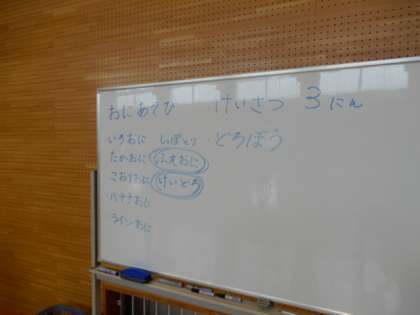 おにあそび けいさつ 3にん
いろおに しっぽとり ・どろぼう
たかおに ふえおに
こおりおに けいどろ
バナナおに
ラインおに